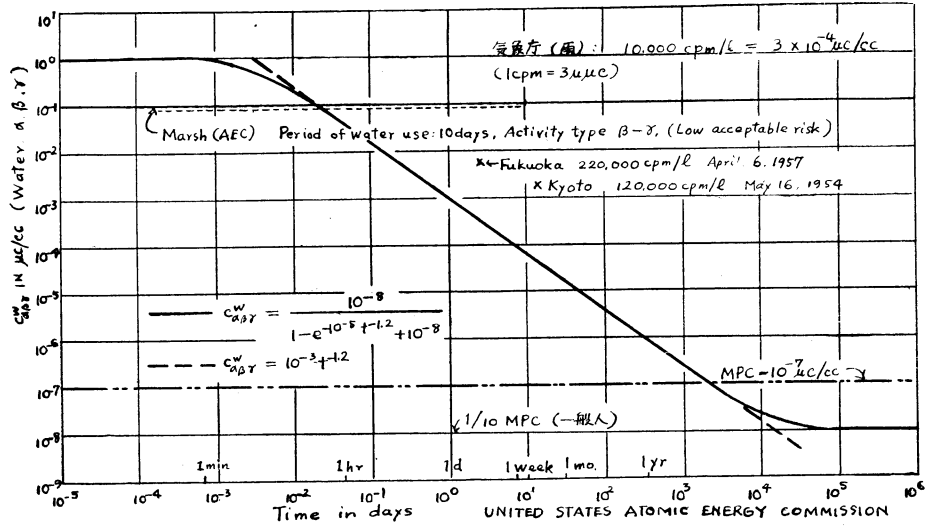 10¹
10⁰
10⁻¹
10⁻²
10⁻³
10⁻⁴
10⁻⁵
10⁻⁶
10⁻⁷
10⁻⁸
10⁻⁹
C^w_αβγ IN μc/cc (Water α.β.γ)
気象庁 (雨): 10,000 cpm/l = 3 × 10⁻⁴ μc/cc
(1cpm = 3μμc)
Marsh (AEC) Period of water use: 10days, Activity type β-γ, (Low acceptable risk)
×←Fukuoka 220,000 cpm/l April 6. 1957
× Kyoto 120,000 cpm/l May 16. 1954
C^w_αβγ = 10⁻⁸ / 1-e^-10⁻⁵t^-1.2 + 10⁻⁸
C^w_αβγ = 10⁻³t^-1.2
MPC - 10⁻⁷ μc/cc
1/10 MPC (一般人)
1min 1hr 1d 1week 1mo. 1yr
10⁻⁵ 10⁻⁴ 10⁻³ 10⁻² 10⁻¹ 10⁰ 10¹ 10² 10³ 10⁴ 10⁵ 10⁶
Time in days UNITED STATES ATOMIC ENERGY COMMISSION